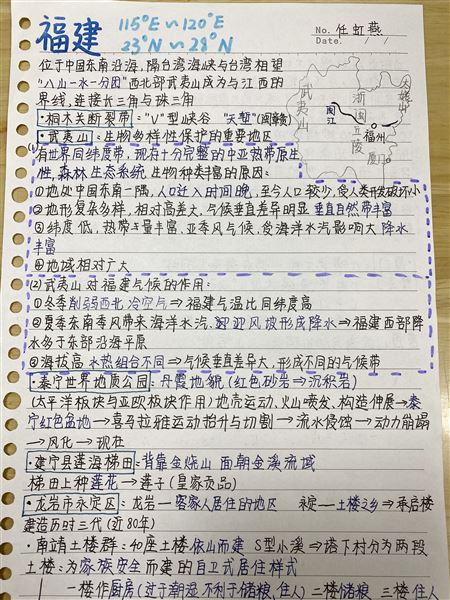 福建
115°E ~ 120°E
23°N ~ 28°N
No. 任虹燕
Date.
位于中国东南沿海,隔台湾海峡与台湾相望
"八山一水一分田"西北部武夷山成为与江西的
界线,连接长三角与珠三角
·桐木关断裂带:"V"型峡谷 "天堑"(闽赣)
·武夷山:生物多样性保护的重要地区
武夷山
闽江
浙闽丘陵
福州
厦门
(1)有世界同纬度带,现存十分完整的中亚热带原生
性,森林生态系统,生物种类丰富的原因:
①地处中国东南一隅,人口迁入时间晚,至今人口较少,受人类开发破坏小
②地形复杂多样,相对高差大,气候垂直差异明显 垂直自然带丰富
③纬度低,热带与量丰富,亚季风气候,受海洋水汽影响大 降水
丰富
④地域相对广大
(2)武夷山对福建气候的作用:
①冬季削弱西北冷空气⇒福建气温比同纬度高
②夏季东南季风带来海洋水汽,迎迎风坡形成降水⇒福建西部降
水多于东部沿海平原
③海拔高 水热组合不同⇒气候垂直差异大,形成不同的气候带
·泰宁世界地质公园:丹霞地貌(红色砂岩→沉积岩)
(太平洋板块与亚欧板块作用)地壳运动、火山喷发、构造伸展→泰
宁红色盆地→喜马拉雅运动抬升与切割→流水侵蚀→动力崩塌
→风化→现在
·建宁县莲海梯田:背靠金饶山 面朝金溪流域
梯田上种莲花→莲子(皇家贡品)
·龙岩市永定区:龙岩—客家人居住的地区 永定—土楼之乡⇒承启楼
建造历时三代(近80年)
·南靖土楼群:40座土楼依山而建 S型小溪⇒塔下村分为两段
土楼:为家族安全而建的自卫式居住样式
一楼作厨房(过于潮湿不利于储粮、住人) 二楼储粮 三楼住人